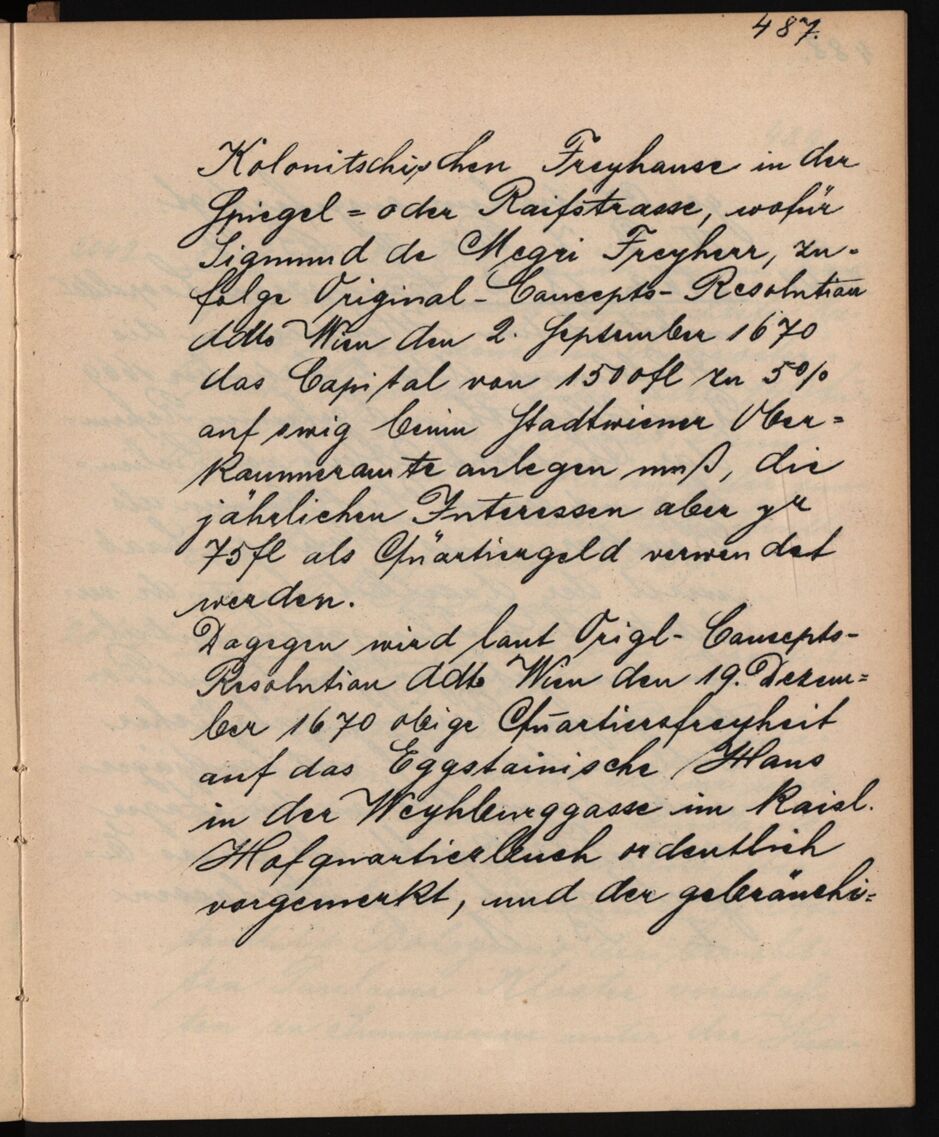 487.
Kolonitschischen Freyhause in der
Spiegel= oder Raifstrasse, wofür
Sigmund de Megri Freyherr, zu=
folge Original-Concepts-Resolution
ddto Wien den 2. September 1670
das Capital von 1500fl zu 5%
auf ewig beim Stadtwiener Ober=
kammeramte anlegen muß, die
jährlichen Interessen aber pr
75fl als Quartiergeld verwendet
werden.
Dagegen wird laut Origl-Concepts-
Resolution ddto Wien den 19. Dezem=
ber 1670 obige Quartiersfreyheit
auf das Eggstainische Haus
in der Weyhburggasse im kaisl.
Hofquartierbuch ordentlich
vorgemerkt, und der gebräuchi=